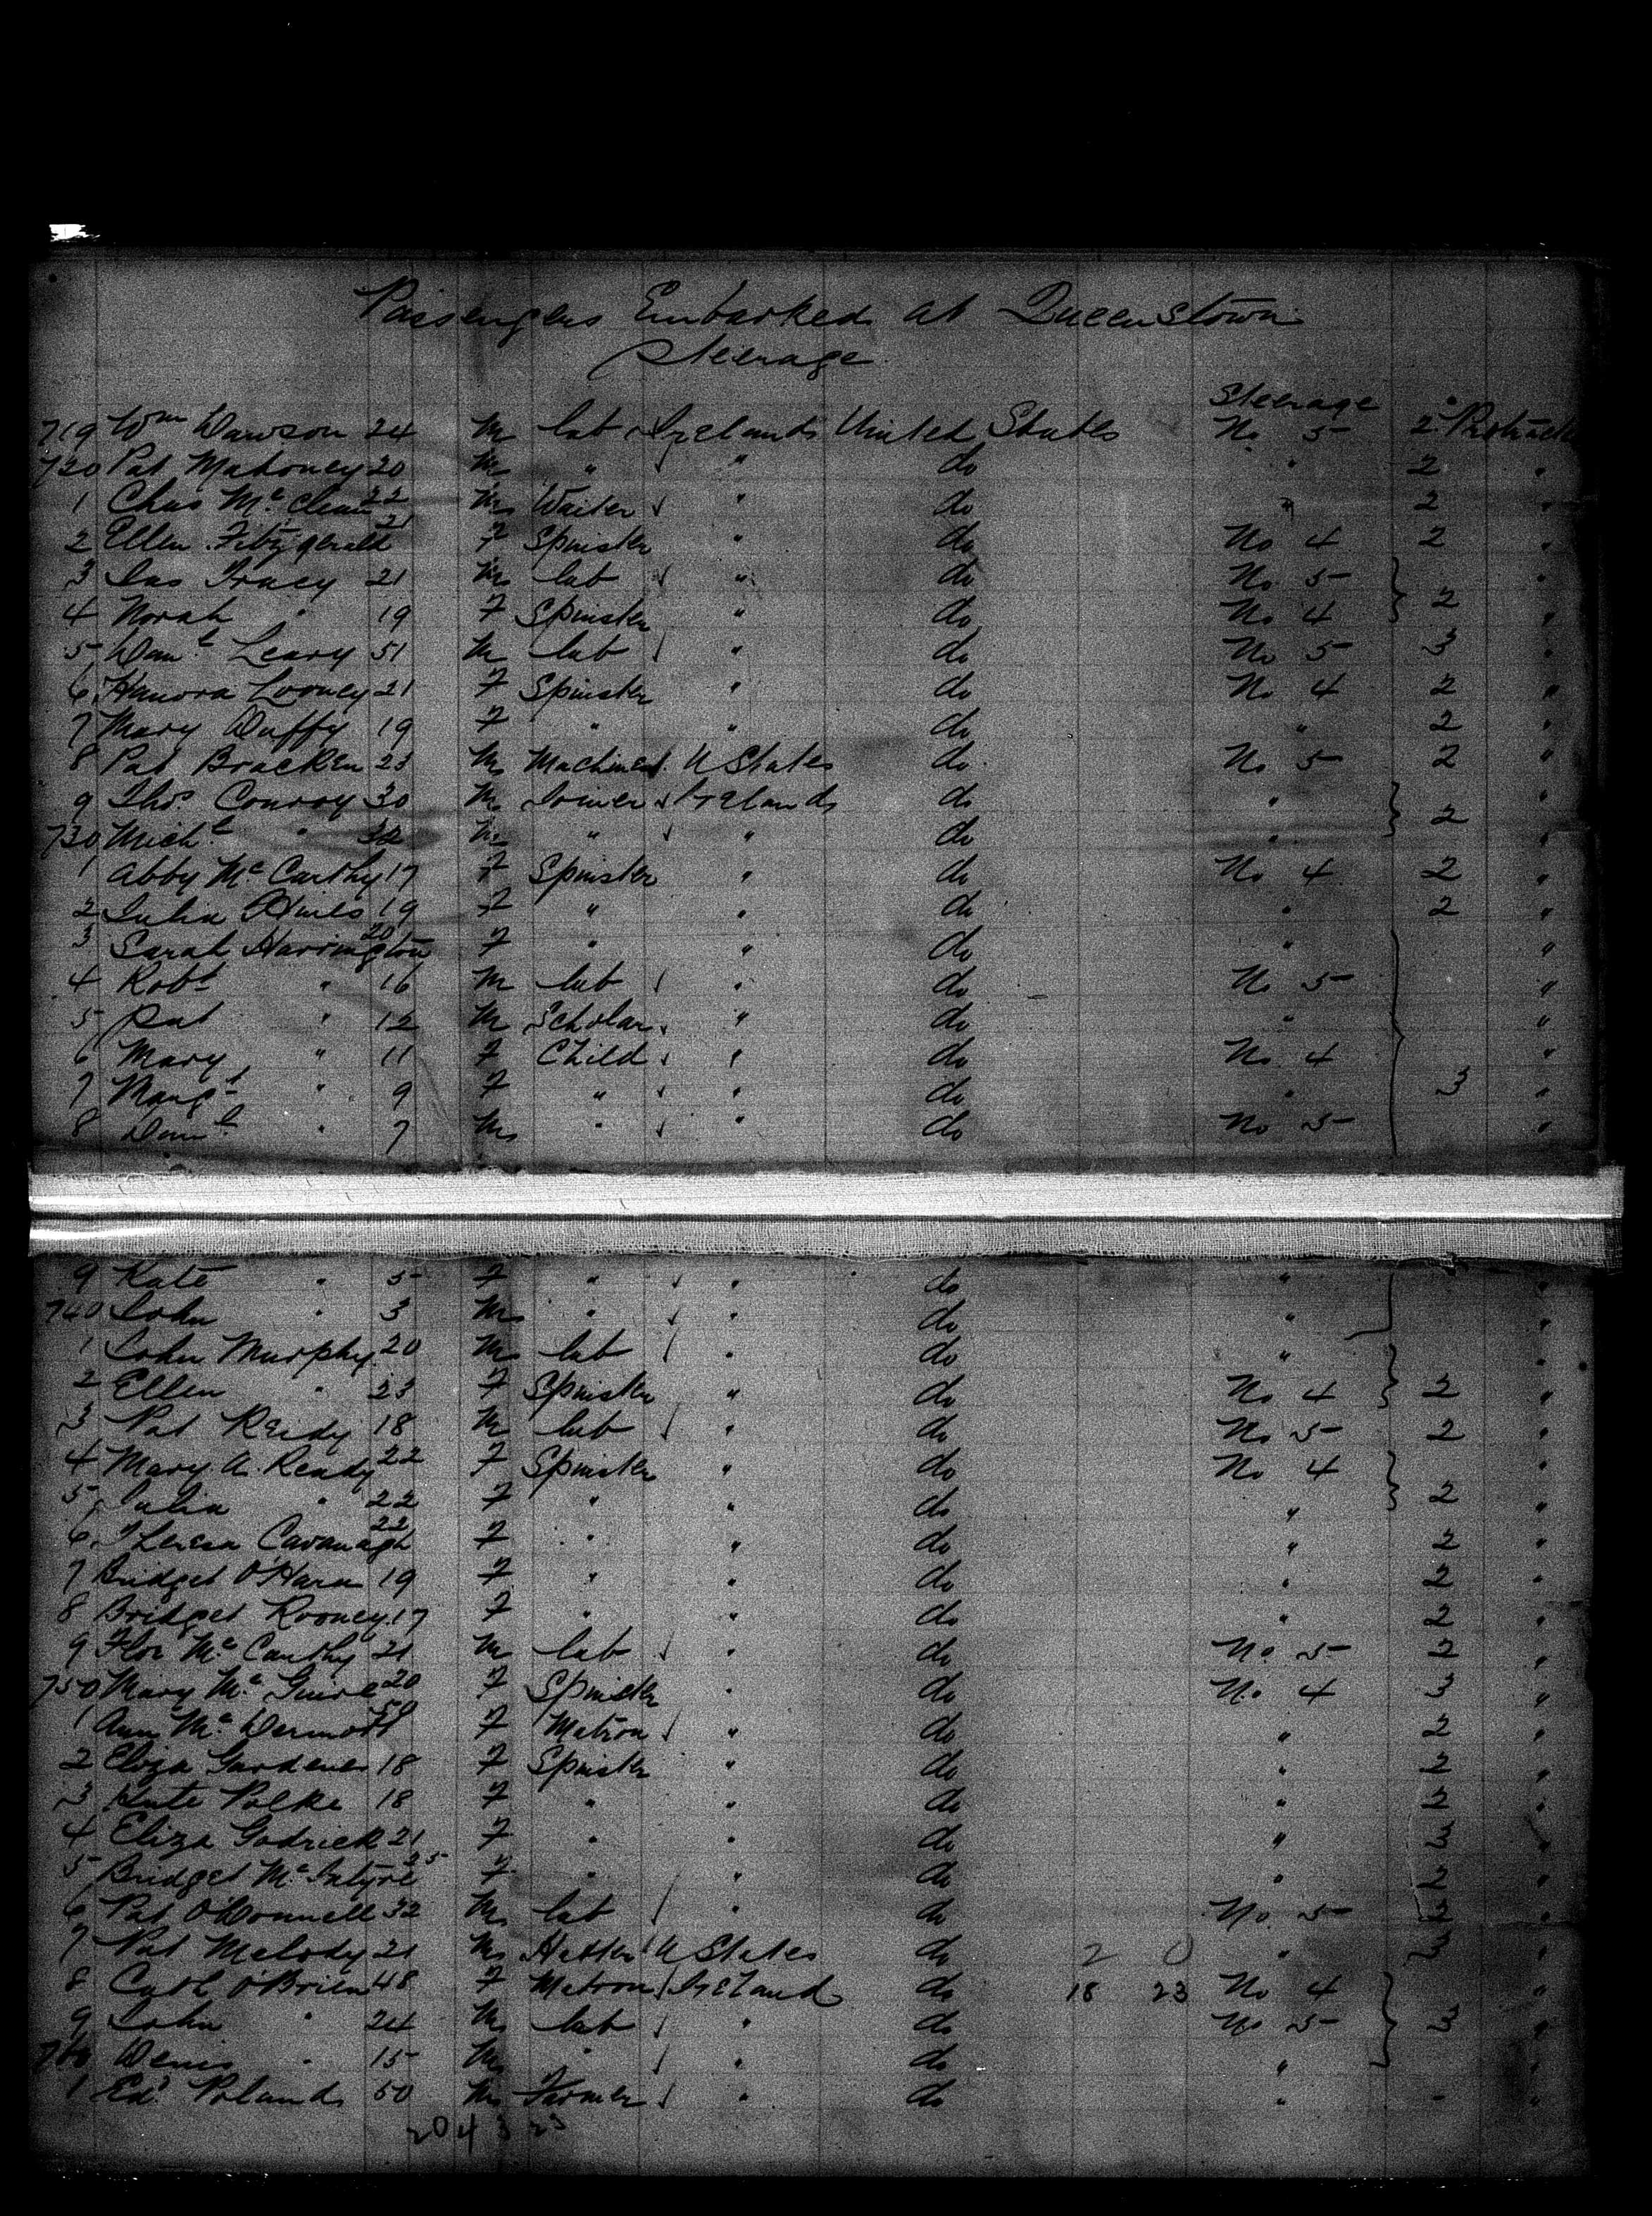 Passengers Embarked at Queenstown
Steerage
Steerage
719 Wm Dawson 24 M lab Ireland United States No 5 2 Protracted
720 Pat Mahoney 20 M " " do " 2 "
1 Chas Mc Clean 22 M Waiter " do " 2 "
2 Ellen Fitzgerald 21 F Spinster " do No 4 2 "
3 Jas Tracy 21 M lab " do No 5 "
4 Norah " 19 F Spinster " do No 4 2 "
5 Danl Leary 51 M lab " do No 5 3 "
6 Hanora Looney 21 F Spinster " do No 4 2 "
7 Mary Duffy 19 F " " do " 2 "
8 Pat Bracken 23 M Machinest U States do No 5 2 "
9 Thos Conroy 30 M Joiner Ireland do " "
730 Michl " M " " do " 2 "
1 Abby Mc Carthy 17 F Spinster " do No 4 2 "
2 Julia Hines 19 F " " do " 2 "
3 Sarah Harrington 20 F " " do " "
4 Robt " 16 M lab " do No 5 "
5 Pat " 12 M Scholar " do " "
6 Mary " 11 F Child " do No 4 "
7 Margt " 9 F " " do " 3 "
8 Danl " 7 M " " do No 5 "
9 Kate " 5 F " " do " "
740 John " 3 M " " do " "
1 John Murphy 20 M lab " do " "
2 Ellen " 23 F Spinster " do No 4 2 "
3 Pat Reidy 18 M lab " do No 5 2 "
4 Mary A. Ready 22 F Spinster " do No 4 "
5 Julia " 22 F " " do " 2 "
6 Theresa Cavanagh 22 F " " do " 2 "
7 Bridget O'Hara 19 F " " do " 2 "
8 Bridget Rooney 17 F " " do " 2 "
9 Flor Mc Carthy 21 M lab " do No 5 2 "
750 Mary Mc Guire 20 F Spinster " do No 4 3 "
1 Ann Mc Dermott 50 F Matron " do " 2 "
2 Eliza Gardener 18 F Spinster " do " 2 "
3 Kate Polke 18 F " " do " 2 "
4 Eliza Godrick 21 F " " do " 3 "
5 Bridget Mc Intyre 25 F " " do " 2 "
6 Pat O'Donnell 32 M lab " do No 5 2 "
7 Pat Melody 21 M Hatter U States do 2 0 " 3 "
8 Cath O'Brien 48 F Matron Ireland do 18 23 No 4 "
9 John " 24 M lab " do No 5 3 "
760 Denis " 15 M " " do " "
1 Ed Poland 50 M Farmer " do " - "
204 3 23